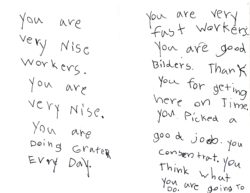 you are
very Nise
workers.
you are
very Nise.
you are
Doing Grater
Evry Day.
you are very
fast workers.
you are good
Bilders. Thank
you for geting
here on Time.
you Picked a
good job. you
consentrat. you
Think what
you are going to
Do.